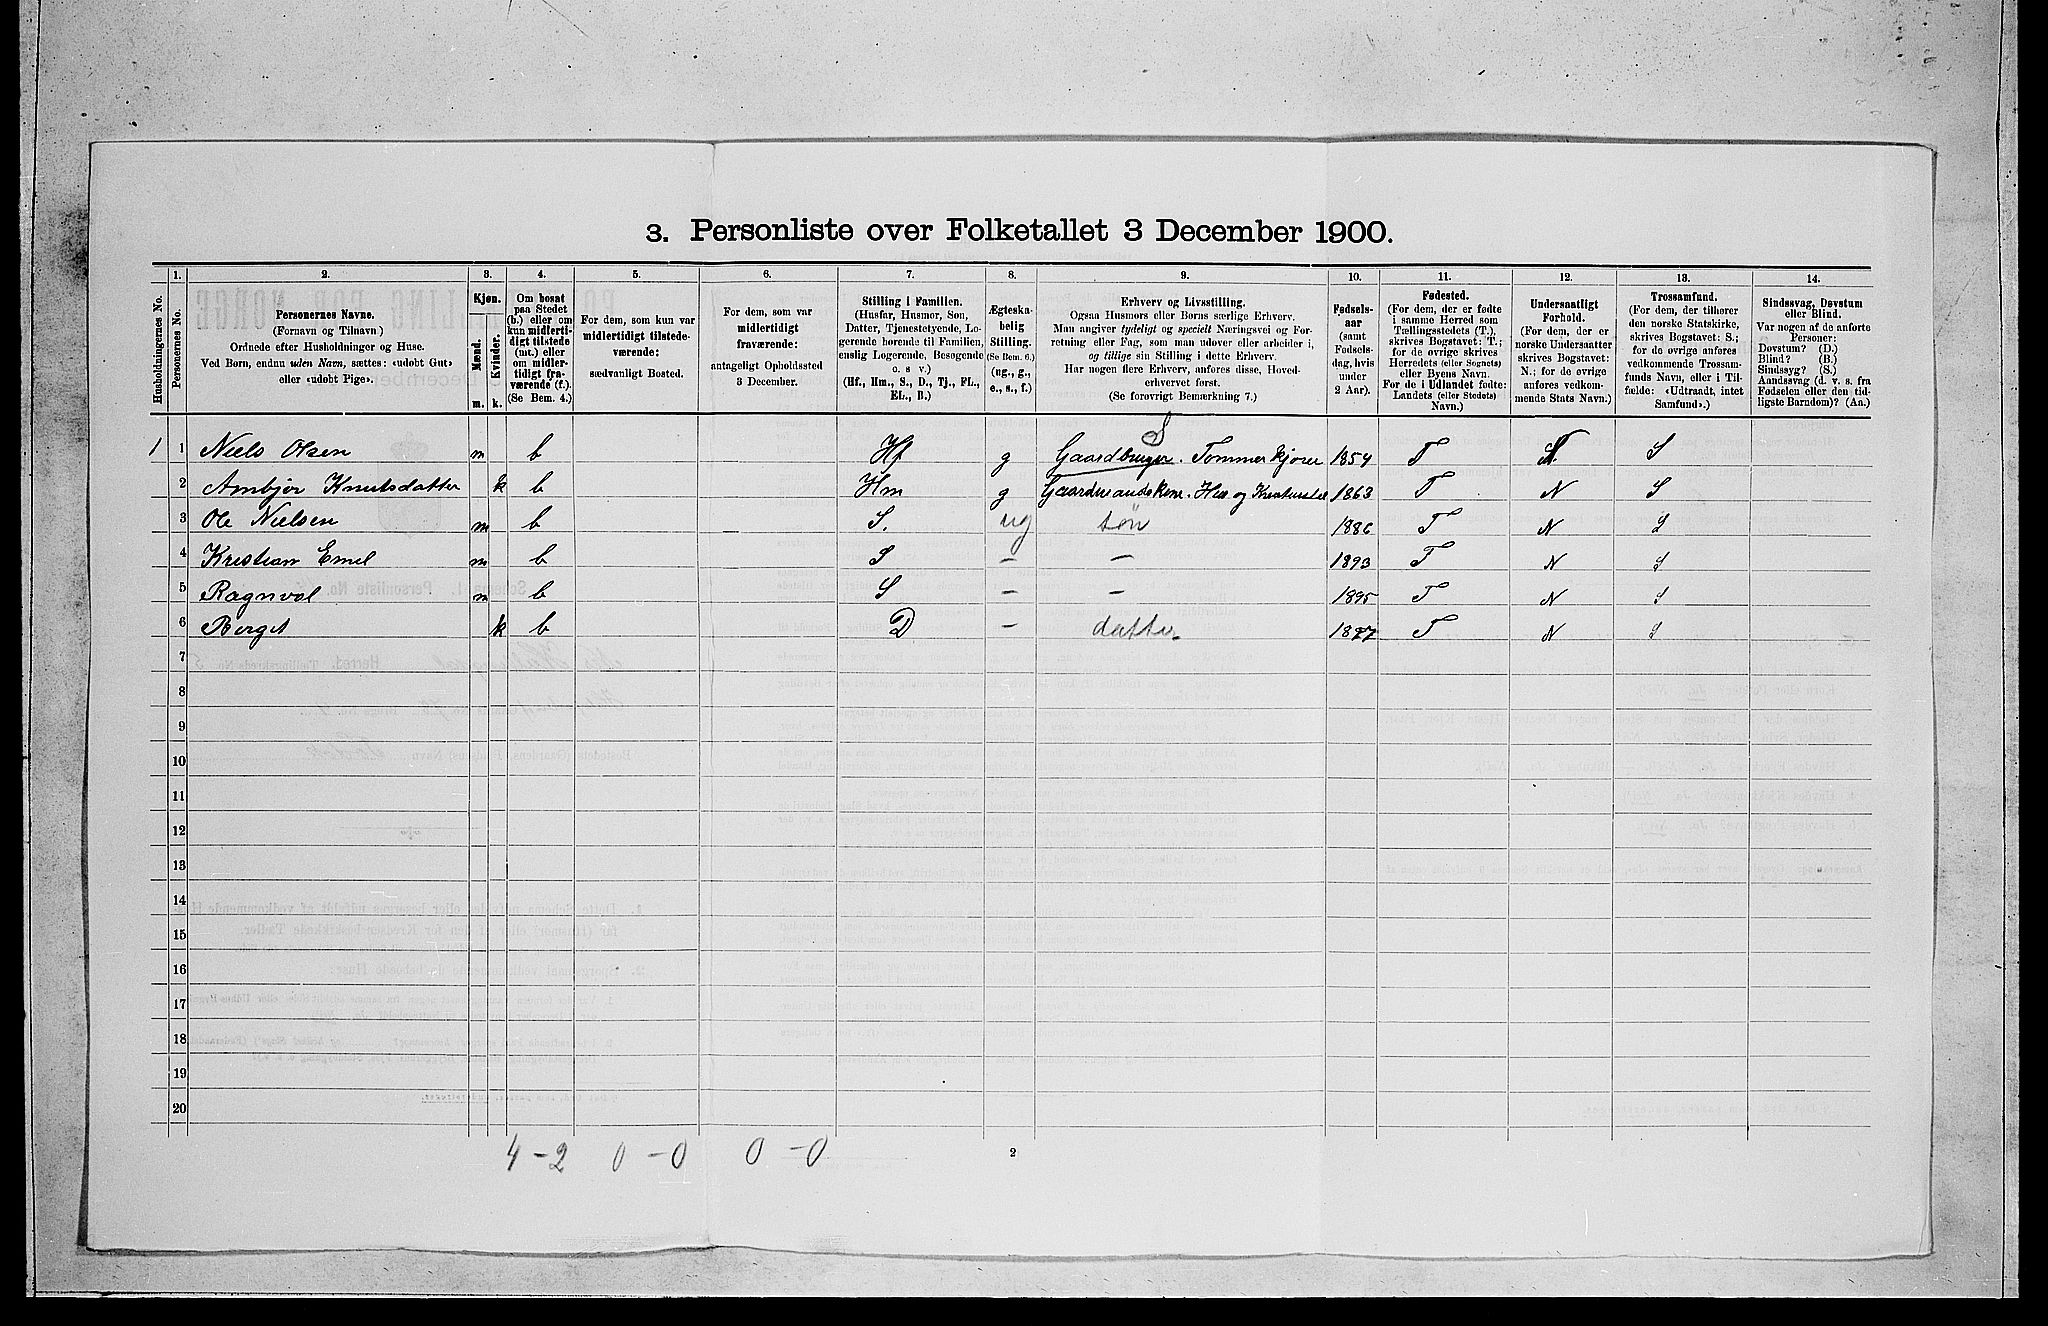 3. Personliste over Folketallet 3 December 1900.
1. 2. 3. 4. 5. 6. 7. 8. 9. 10. 11. 12. 13. 14.
Husholdningernes No.
Personernes No.
Personernes Navne.
(Fornavn og Tilnavn)
Ordnede efter Husholdninger og Huse.
Ved Børn, endnu uden Navn, sættes: «udøbt Gut»
eller «udøbt Pige».
Kjøn.
Mænd.
Kvinder.
m. k.
Om bosat
paa Stedet
(b.) eller om
kun midlerti-
digt tilstede
(mt.) eller
om midler-
tidigt fra-
værende (f.).
(Se Bem. 4.)
For dem, som kun var
midlertidigt tilstede-
værende:
sædvanligt Bosted.
For dem, som var
midlertidigt
fraværende:
antageligt Opholdssted
3 December.
Stilling i Familien.
(Husfar, Husmor, Søn,
Datter, Tjenestetyende, Lo-
gerende hørende til Familien,
enslig Logerende, Besøgende
o. s v.)
(Hf., Hm., S., D., Tj., FL.,
EL., B.)
Ægteska-
belig
Stilling.
(Se Bem. 6.)
(ug., g.,
e., s., f.)
Erhverv og Livsstilling.
Ogsaa Husmors eller Børns særlige Erhverv.
Man angiver tydeligt og specielt Næringsvei og For-
retning eller Fag, som man udøver eller arbeider i,
og tillige sin Stilling i dette Erhverv.
Har nogen flere Erhverv, anføres disse, Hoved-
erhvervet først.
(Se forøvrigt Bemærkning 7.)
Fødsels-
aar
(samt
Fødsels-
dag, hvis
under
2 Aar).
Fødested.
(For dem, der er fødte
i samme Herred som
Tællingsstedets (T.),
skrives Bogstavet: T.;
for de øvrige skrives
Herredets (eller Sognets)
eller Byens Navn.
For de i Udlandet fødte:
Landets (eller Stedets)
Navn.)
Undersaatligt
Forhold.
(For dem, der er
norske Undersaatter
skrives Bogstavet:
N.; for de øvrige
anføres vedkom-
mende Stats Navn.)
Trossamfund.
(For dem, der tilhører
den norske Statskirke,
skrives Bogstavet: S.;
for de øvrige anføres
vedkommende Trossam-
funds Navn, eller i Til-
fælde: «Udtraadt, intet
Samfund».)
Sindssvag, Døvstum
eller Blind.
Var nogen af de anførte
Personer:
Døvstum? (D.)
Blind? (B.)
Sindssyg? (S.)
Aandssvag (d. v. s. fra
Fødselen eller den tid-
ligste Barndom)? (Aa.)
S
1 1 Niels Olsen m b Hf g Gaardbruger. Tømmerkjører 1854 T N. S
2 Ambjør Knutsdatter k b Hm g 1863 T N S
3 Ole Nielsen m b S. ug søn 1886 T N S
4 Kristian Emel m b S – – 1893 T N S
5 Ragnval m b S – – 1895 T N S
6 Berget k b D – datter 18 T N S
7
8
9
10
11
12
13
14
15
16
17
18
19
20
4 – 2 0 – 0 0 – 0
2